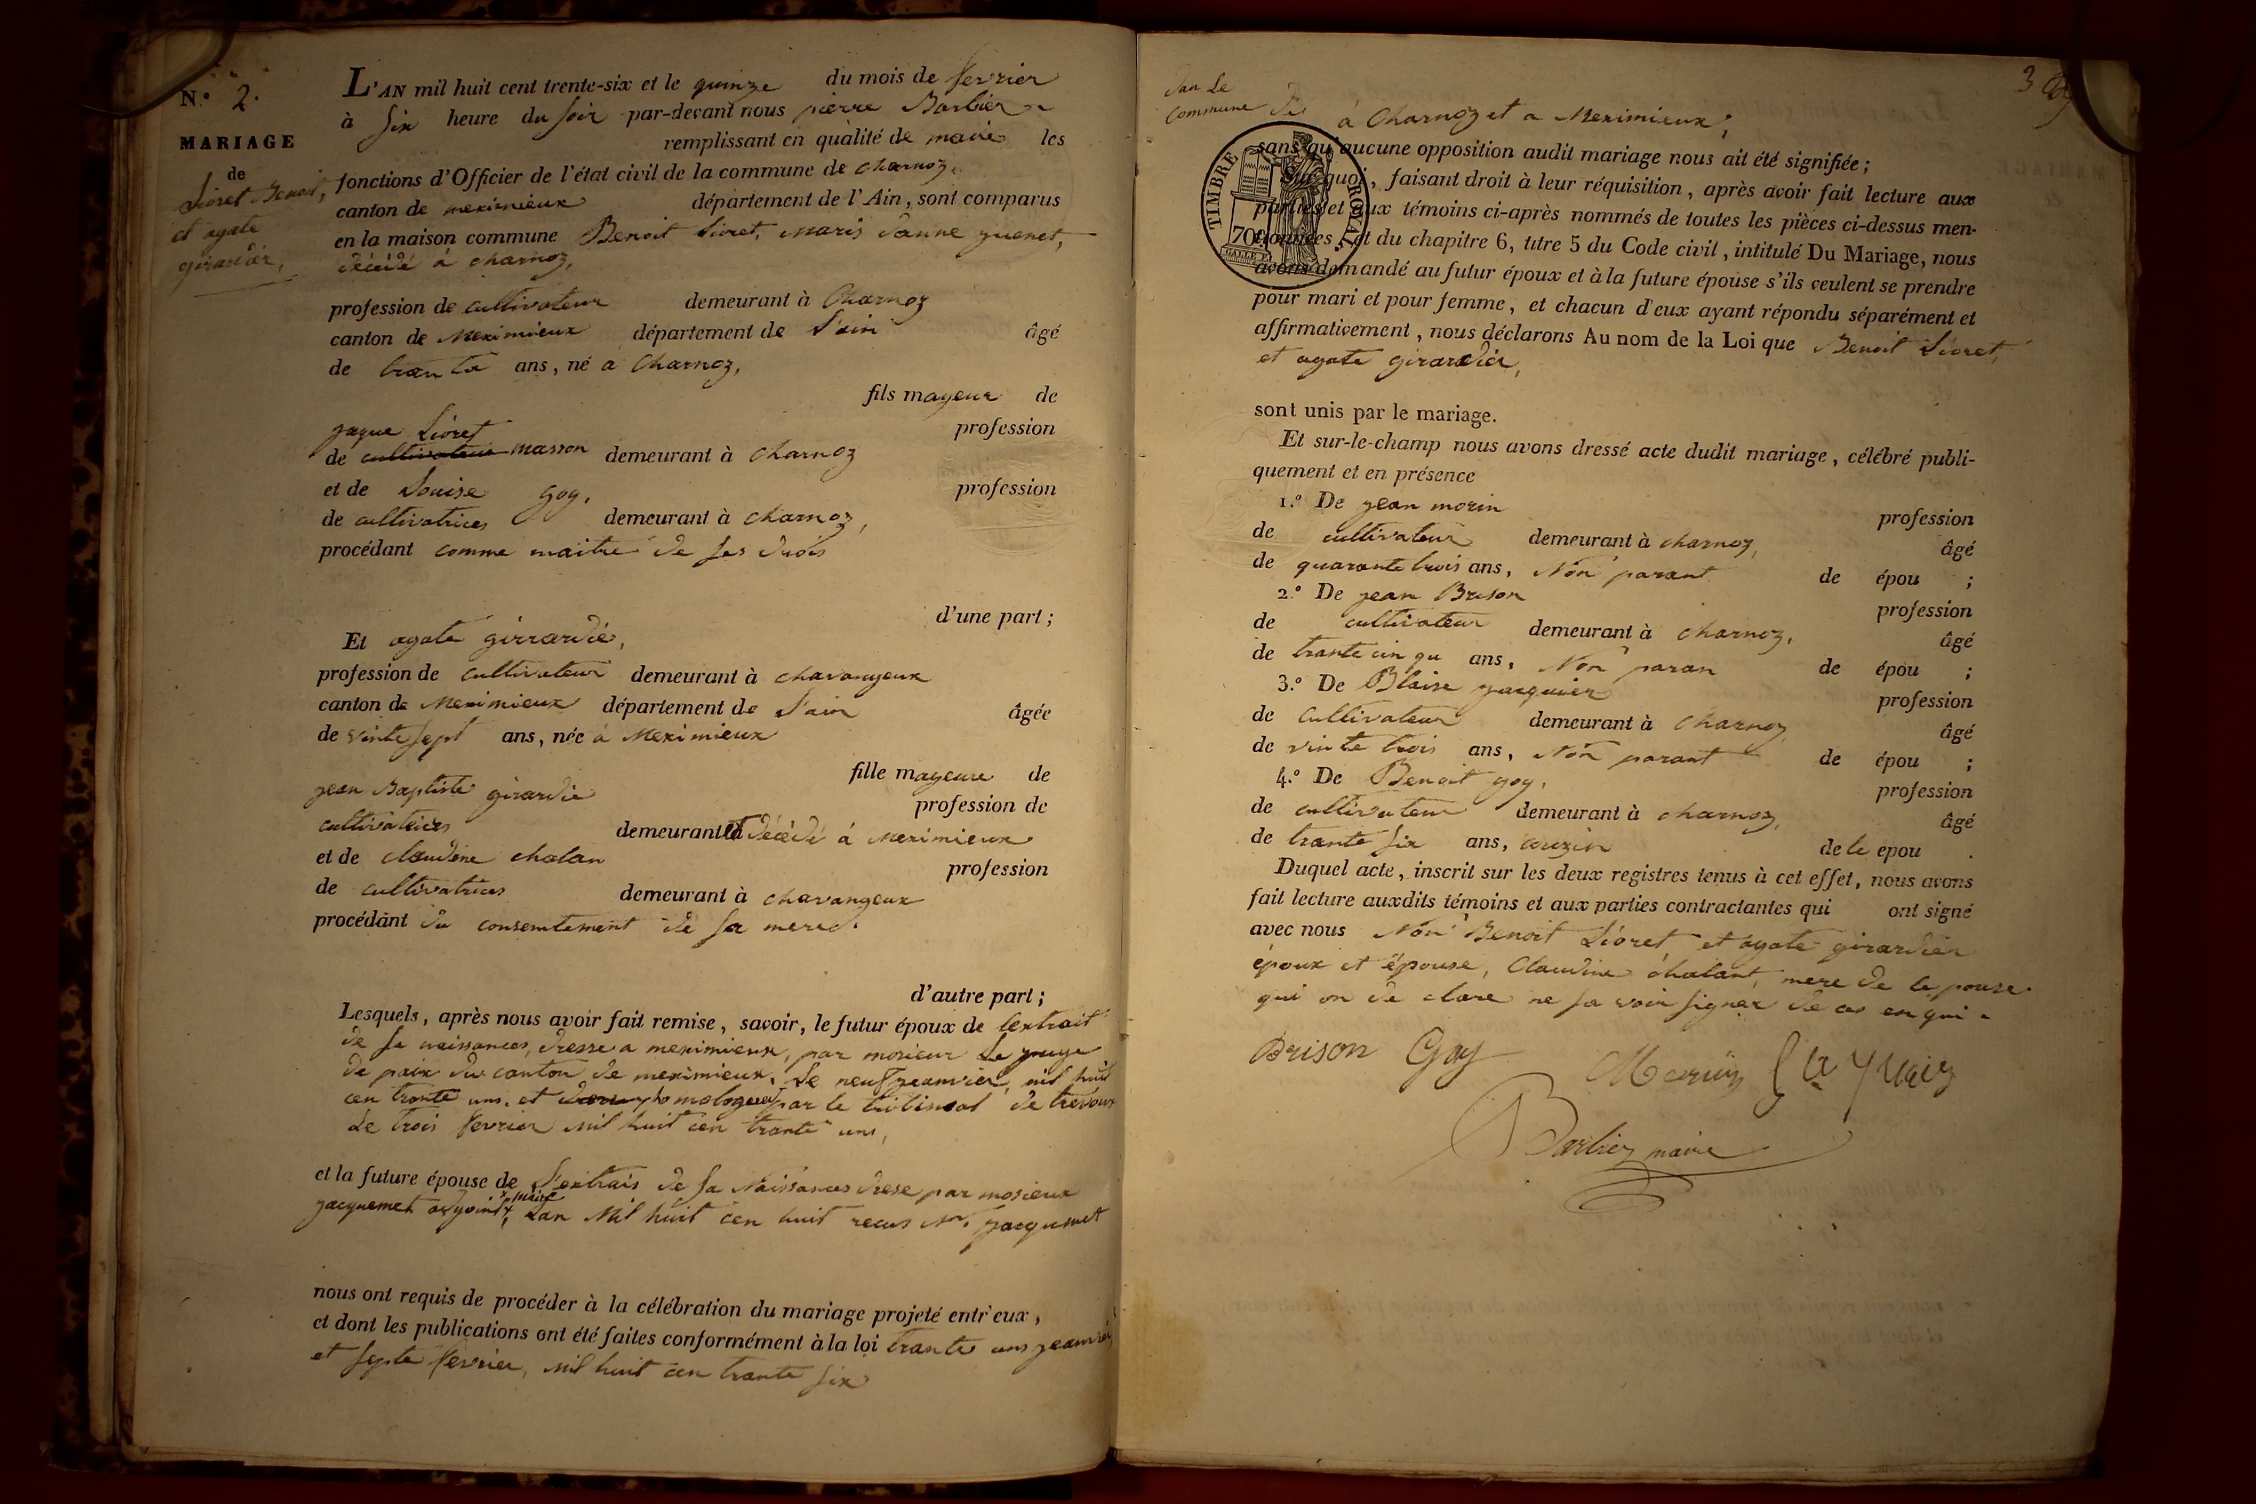 N.° 2.
MARIAGE
de
Lioret Benoit,
et agate
girardié,
L'AN mil huit cent trente-six et le quinze du mois de fevrier
à six heure du soir par-devant nous pierre Barbier
remplissant en qualité de maire les
fonctions d'Officier de l'état civil de la commune de charnoz,
canton de meximieux département de l'Ain, sont comparus
en la maison commune Benoit Lioret, maris d'anne guenet,
décédé a charnoz,
profession de cultivateur demeurant à Charnoz
canton de Meximieux département de l'ain âgé
de trante ans, né à Charnoz,
fils mayeur de
jaque Lioret profession
de cultivateur masson demeurant à charnoz
et de Louise goy, profession
de cultivatrices demeurant à charnoz,
procédant comme maitre de ses drois
d'une part;
Et agate girrardié,
profession de cultivateur demeurant à chavangeux
canton de Meximieux département de l'ain âgée
de vinte sept ans, née à Meximieux
fille mayeure de
jean Baptiste girardié profession de
cultivatrices demeurant à décédé à Meximieux
et de claudine chalan profession
de cultivatrices demeurant à chavangeux
procédant du consentement de sa mere.
d'autre part;
Lesquels, après nous avoir fait remise, savoir, le futur époux de lextrait
de sa naissances, dresse a meximieux, par mosieur Le juge
de paix du canton de meximieux. Le neuf jeanvier, mil huit
cen trante uns, et homologuer par le tribinal de trevoux
Le trois fevrier mil huit cen trante uns,
et la future épouse de L'extrais de sa Naissances drese par mosieux
jacquemet adjoint, maire
Lan Mil huit cen huit recus Mr. jacquemet
nous ont requis de procéder à la célébration du mariage projeté entr'eux,
et dont les publications ont été faites conformément à la loi trante uns jeanvier
et septe fevrier, mil huit cen trante six
3
dan Le
Commune de à Charnoz et a Meximieux,
TIMBRE ROYAL
70
sans qu'aucune opposition audit mariage nous ait été signifiée;
Sur quoi, faisant droit à leur réquisition, après avoir fait lecture aux
parties et aux témoins ci-après nommés de toutes les pièces ci-dessus men-
tionnées, et du chapitre 6, titre 5 du Code civil, intitulé Du Mariage, nous
avons demandé au futur époux et à la future épouse s'ils veulent se prendre
pour mari et pour femme, et chacun d'eux ayant répondu séparément et
affirmativement, nous déclarons Au nom de la Loi que Benoit Lioret,
et agate girardier,
sont unis par le mariage.
Et sur-le-champ nous avons dressé acte dudit mariage, célébré publi-
quement et en présence
1.° De jean morin profession
de cultivateur demeurant à charnoz, âgé
de quarante trois ans, Non parant de épou ;
2.° De jean Brison profession
de cultivateur demeurant à charnoz, âgé
de trante cinqu ans, Non paran de épou ;
3.° De Blaise jacquier profession
de cultivateur demeurant à charnoz âgé
de vinte trois ans, Non parant de épou ;
4.° De Benoit goy, profession
de cultivateur demeurant à charnoz, âgé
de trante six ans, couzin de le epou .
Duquel acte, inscrit sur les deux registres tenus à cet effet, nous avons
fait lecture auxdits témoins et aux parties contractantes qui ont signé
avec nous Non Benoit Lioret et agate girardier
époux et épouse, Claudine chalant, mere de le pouse
qui on de clare ne sa voir signer de ce en qui
Brison Goy Morin
Barbier maire